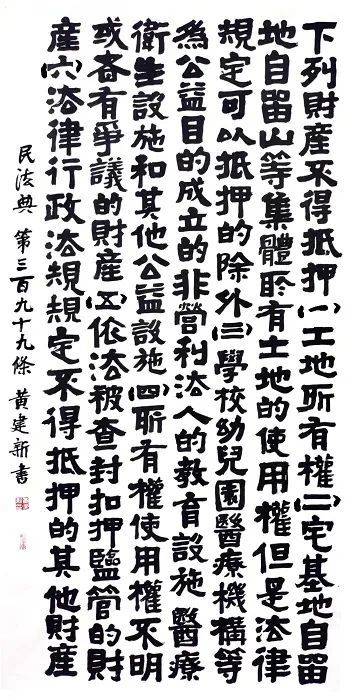 下列財產不得抵押(一)工地所有權(二)宅基地自留
地自留山等集體所有土地的使用權但是法律
規定可以抵押的除外(三)學校幼兒園醫療機構等
為公益目的成立的非營利法人的教育設施醫療
衛生設施和其他公益設施(四)所有權使用權不明
或者有爭議的財產(五)依法被查封扣押鹽管的財
產(六)法律行政法規規定不得抵押的其他財產
民法典 第三百九十九條 黃建新書